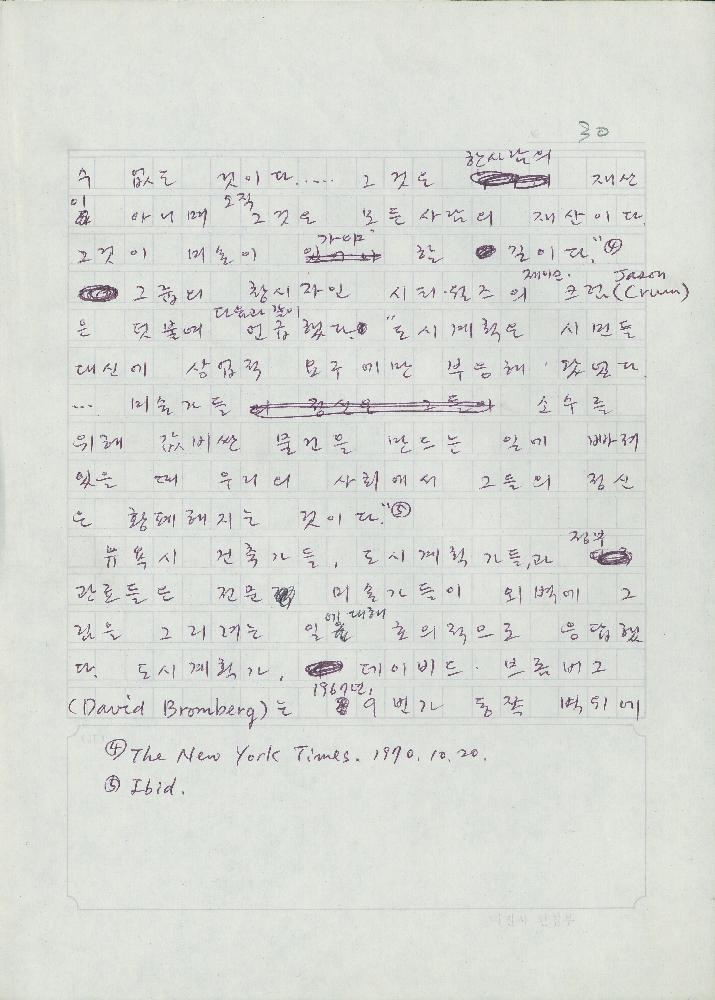 30
수 없는 것이다..... 그것은 한사람의 재산
이 아니며 오직 그것은 모든 사람의 재산이다.
그것이 미술이 가야만 할 길이다." ④
그 그룹의 창시자인 시티·월즈의 제이슨· 크럼(Jason Crum)
은 덧붙여 다음과 같이 언급했다. "도시계획은 시민들
대신에 상업적 요구에만 부응해 왔었다.
... 미술가들 소수를
위해 값비싼 물건을 만드는 일에 빠져
있을 때 우리의 사회에서 그들의 정신
은 황폐해지는 것이다." ⑤
뉴욕시 건축가들, 도시계획가들,과 정부
관료들은 전문 미술가들이 외벽에 그
림을 그리려는 일에 대해 호의적으로 응답했
다. 도시계획가, 데이비드·브롬버그
(David Bromberg)는 1967년, 9번가 동쪽 벽위에
④ The New York Times. 1970. 10. 20.
⑤ Ibid.